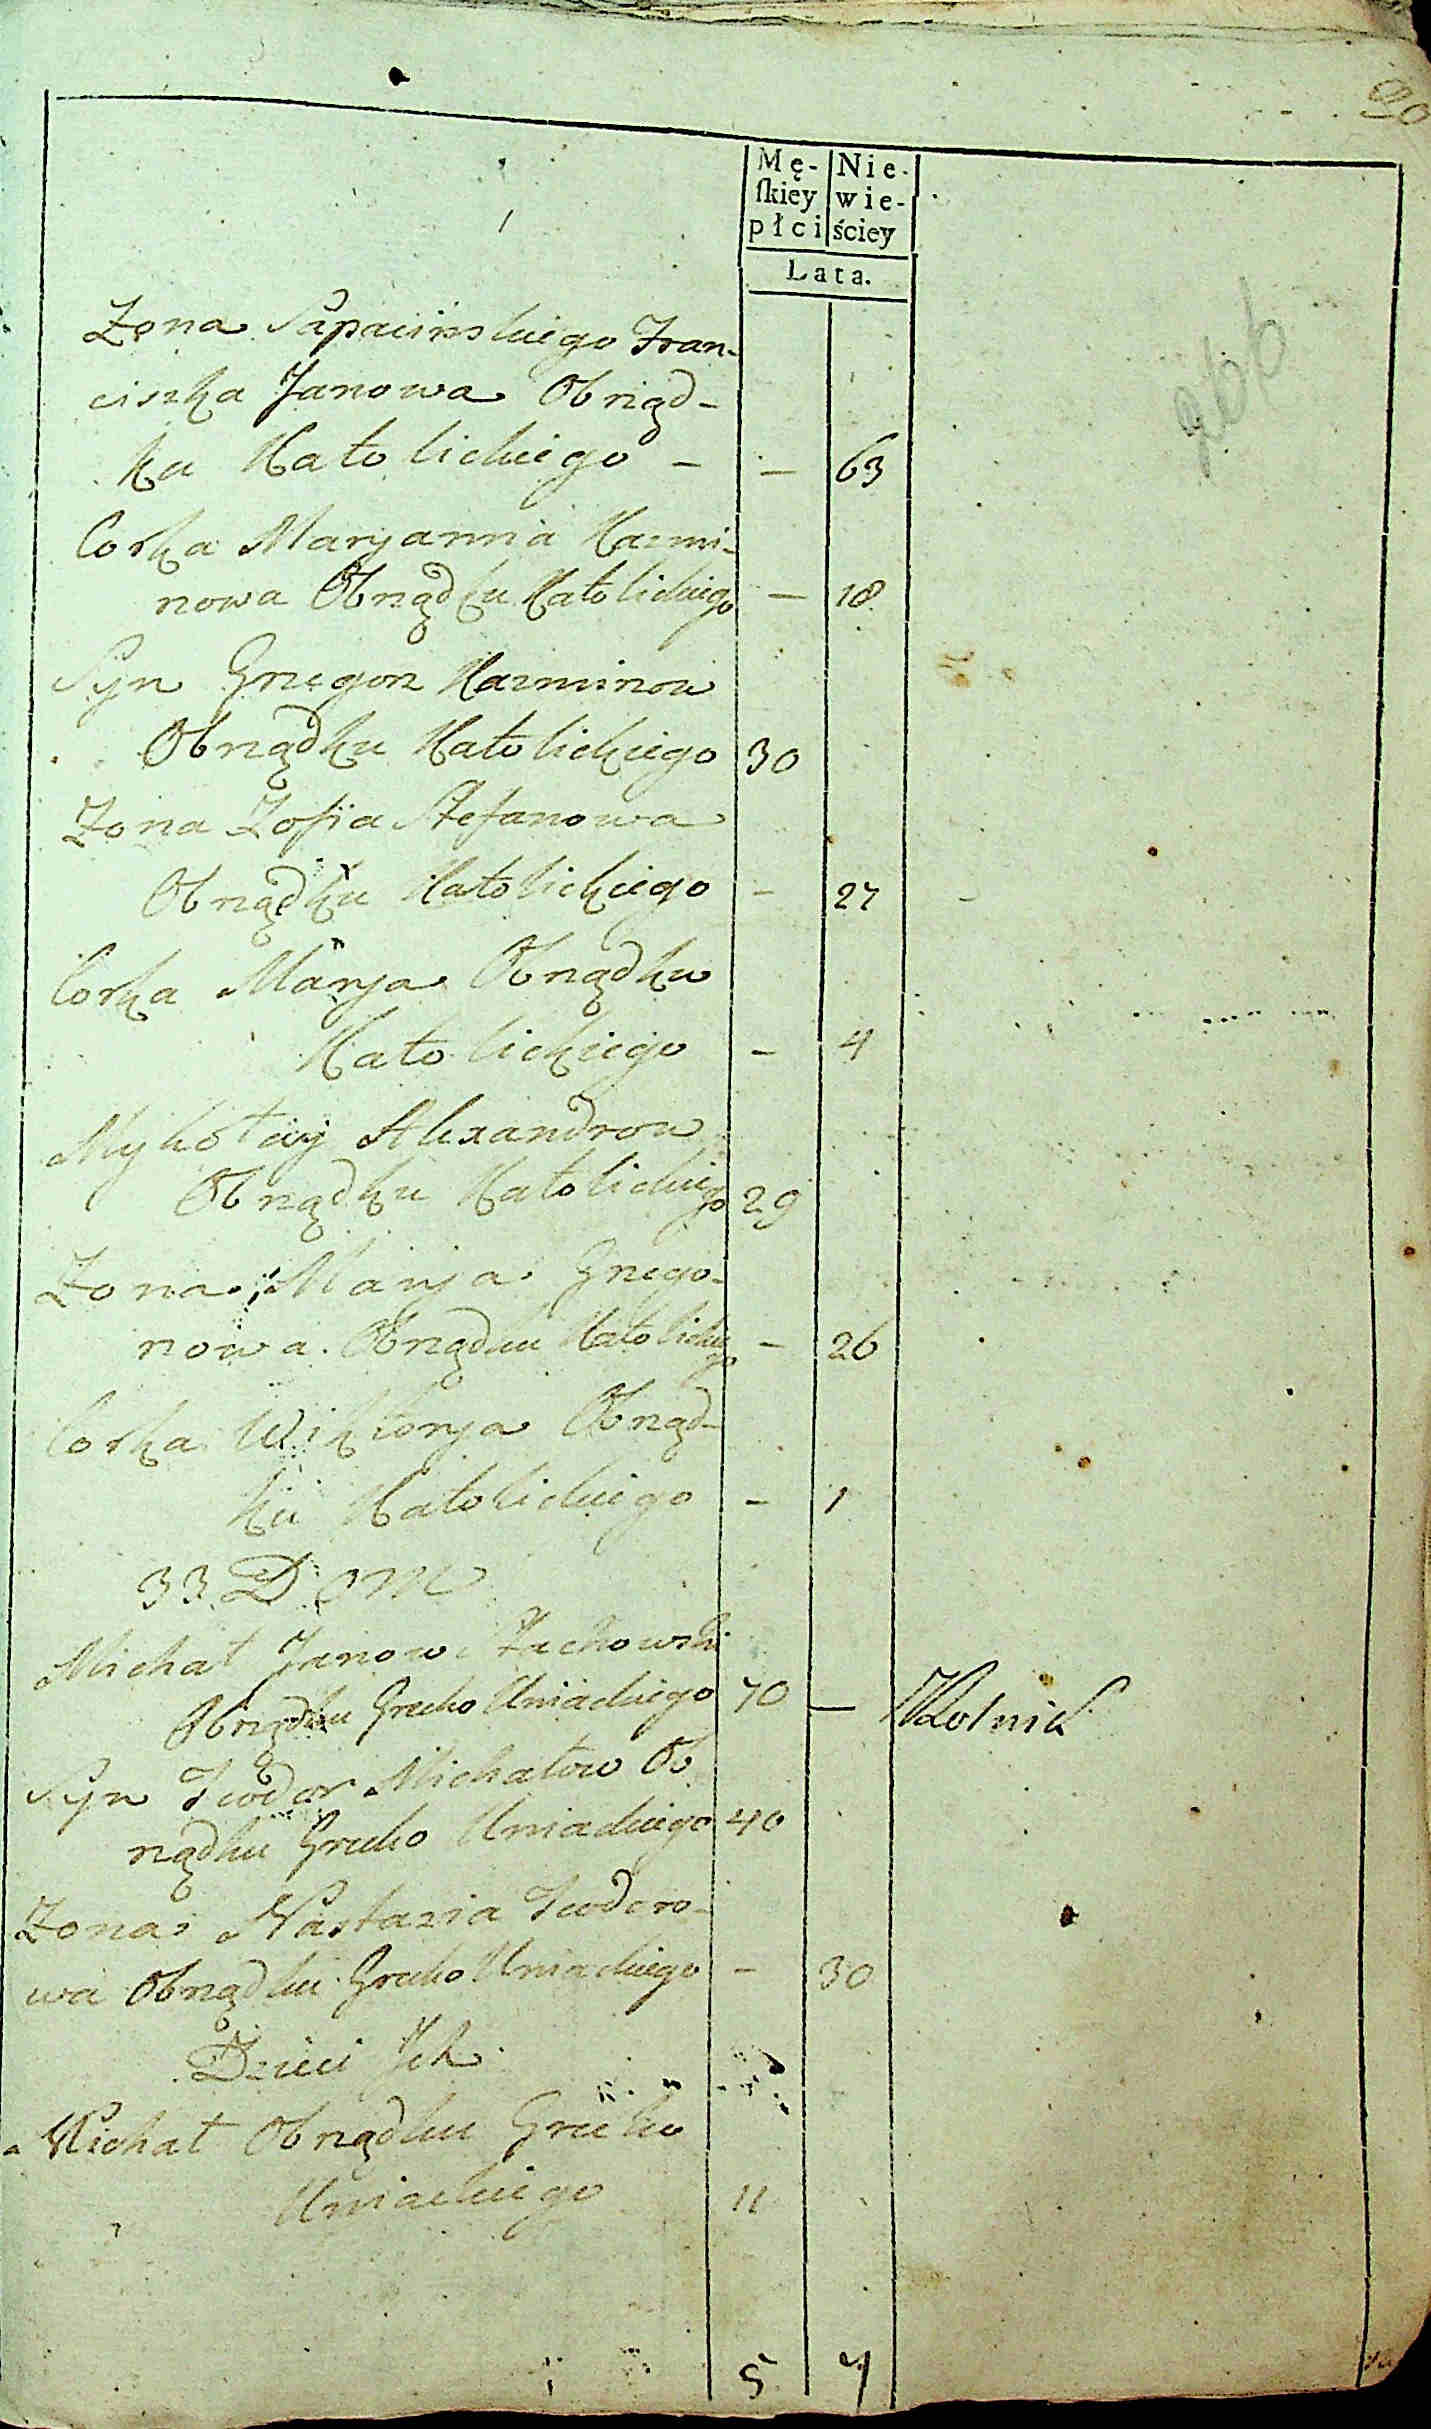 20
Mę- Nie-
ſkiey wie-
płci ściey
Lata.
966
Zona Sapacinskiego Fran-
ciszka Janowa Obrząd-
ku Katolickiego - - 63
Corka Maryanna Kazmi-
rowa Obrządku Katolickiego - 18
Syn Grzegorz Kazmirow
Obrządku Katolickiego 30
Zona Zofia Stefanowa
Obrządku Katolickiego - 27
Corka Marya Obrządku
Katolickiego - 4
Mykołay Alexandrow
Obrządku Katolickiego 29
Zona Marya Grzego-
rowa Obrządku Katolickiego - 26
Corka Wiktorya Obrząd-
ku Katolickiego - 1
33 Dom
Michał Janow Zachowski
Obrządku Greko Uniackiego 70 - Rolnik
Syn Teodor Michałow Ob
rządku Greko Uniackiego 40
Zona Nastazia Teodoro-
wa Obrządku Greko Uniackiego - 30
Dzieci Ich
Michał Obrządku Greko
Uniackiego 11
5 7